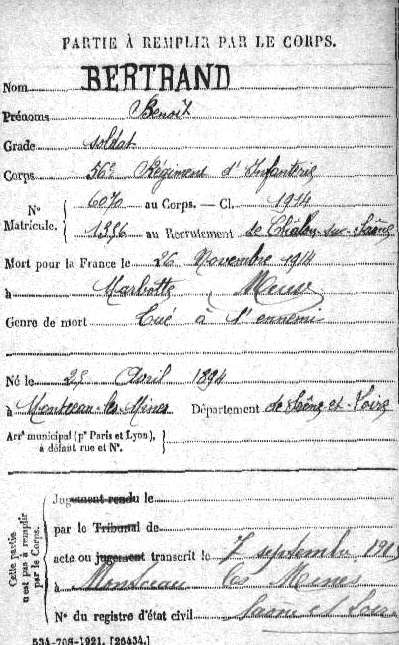 PARTIE À REMPLIR PAR LE CORPS.
Nom BERTRAND
Prénoms Benoit
Grade soldat
Corps 56e Régiment d'Infanterie
N° Matricule. { 6070 au Corps. — Cl. 1914
1356 au Recrutement de Châlon-sur-Saône
Mort pour la France le 26 Novembre 1914
à Marbotte, Meuse
Genre de mort Tué à l'ennemi
Né le 25 Avril 1894
à Montceau-les-Mines Département de Saône-et-Loire
Arrt municipal (pr Paris et Lyon), à défaut rue et N°. {
Cette partie n'est pas à remplir par le Corps.
Jugement rendu le
par le Tribunal de
acte ou jugement transcrit le 7 septembre 1915
à Montceau les Mines
N° du registre d'état civil Saone et Loire
534-708-1921. [26434.]